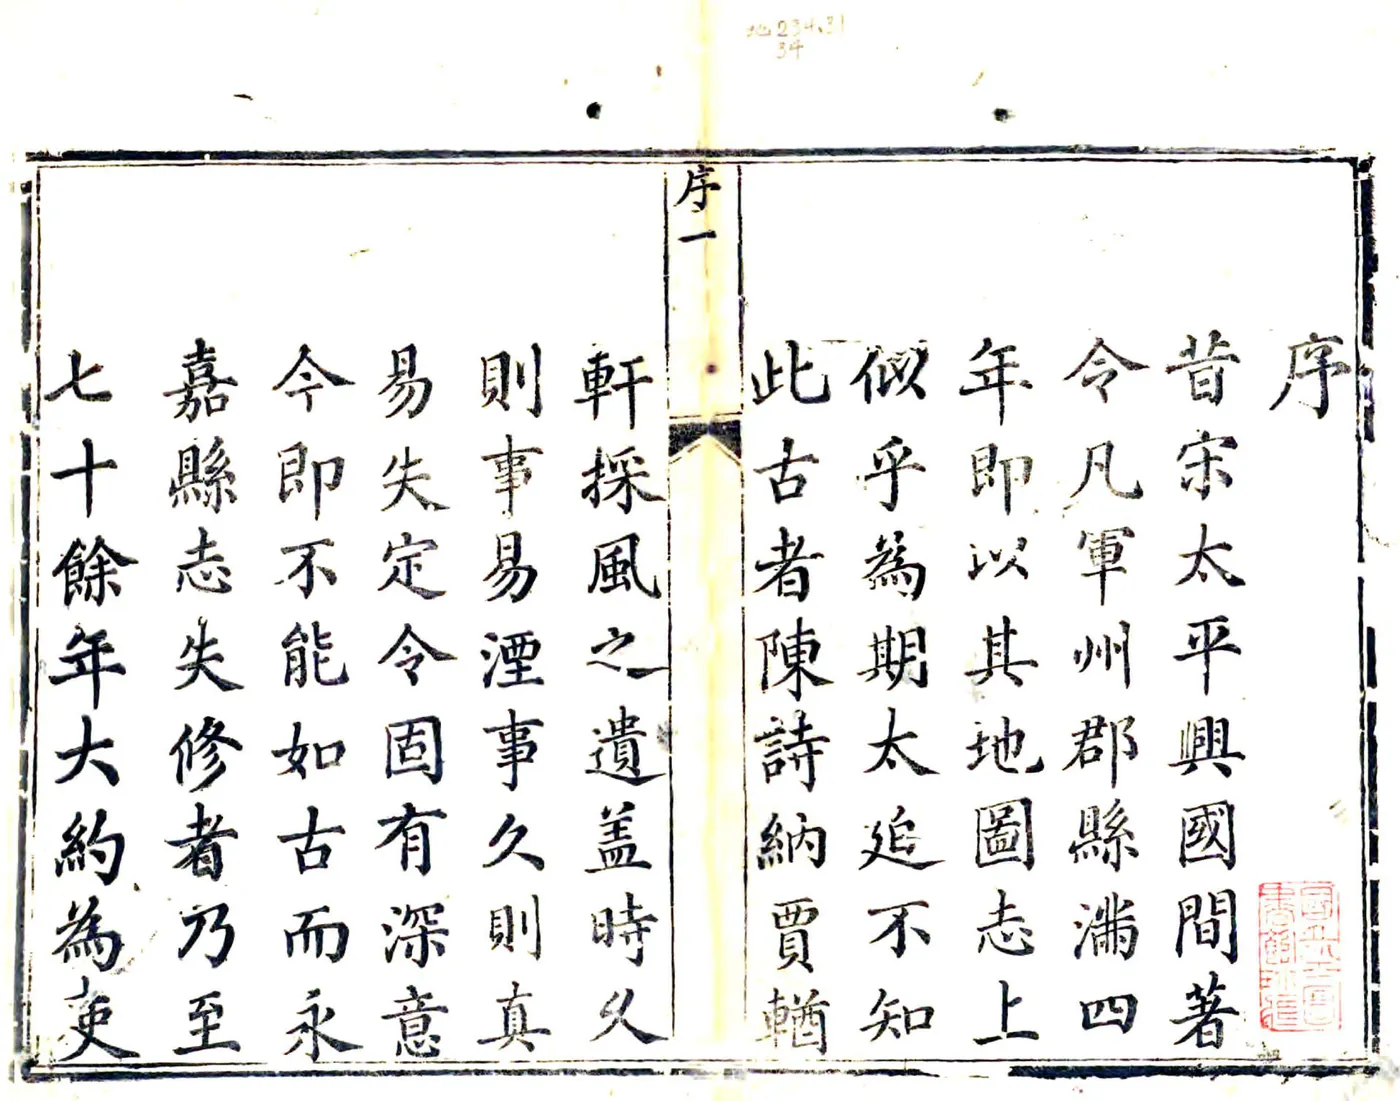 地234.31
34
序
昔宋太平興國間著
令凡軍州郡縣滿四
年即以其地圖志上
似乎為期太近不知
此古者陳詩納賈輶
序一
軒採風之遺盖時久
則事易湮事久則真
易失定令固有深意
今即不能如古而永
嘉縣志失修者乃至
七十餘年大約為吏